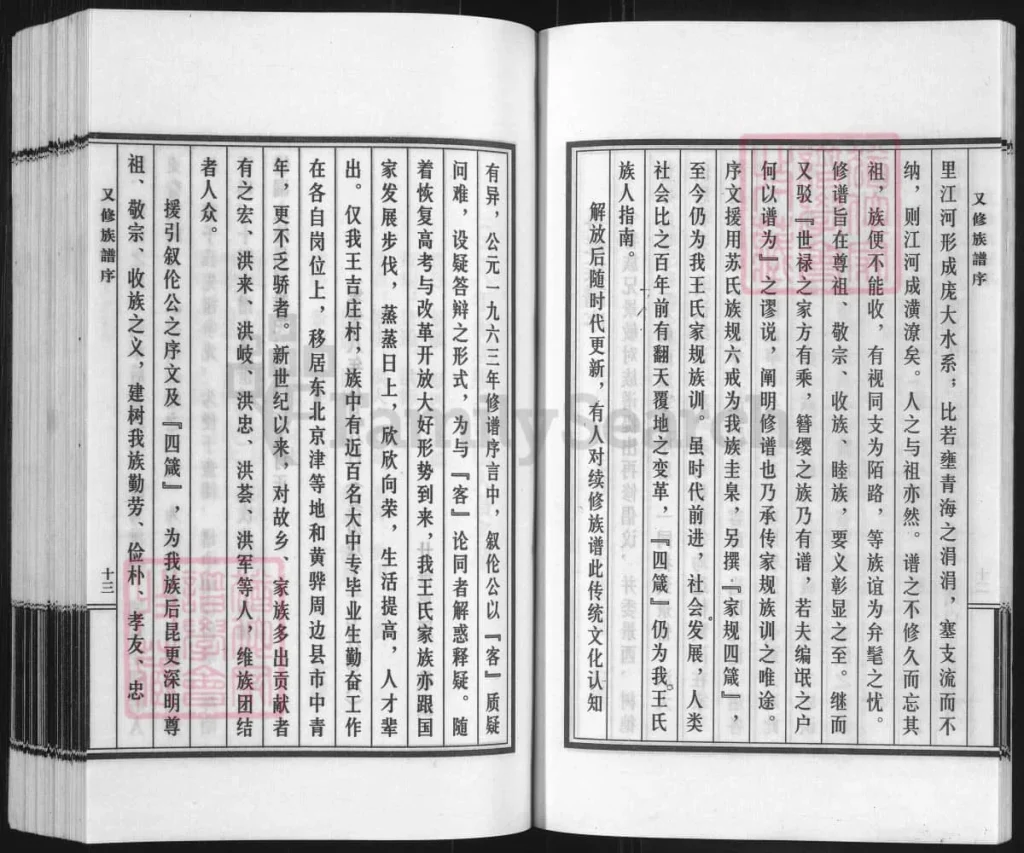 又修族譜序
里江河形成庞大水系；比若壅青海之涓涓，塞支流而不
纳，则江河成潢潦矣。人之与祖亦然。谱之不修久而忘其
祖，族便不能收，有视同支为陌路，等族谊为弁髦之忧。
修谱旨在尊祖、敬宗、收族、睦族，要义彰显之至。继而
又驳『世禄之家方有乘，簪缨之族乃有谱，若夫编氓之户
何以谱为』之谬说，阐明修谱也乃承传家规族训之唯途。
序文援用苏氏族规六戒为我族圭臬，另撰『家规四箴』，
至今仍为我王氏家规族训。虽时代前进，社会发展，人类
社会比之百年前有翻天覆地之变革，『四箴』仍为我王氏
族人指南。
解放后随时代更新，有人对续修族谱此传统文化认知
有异，公元一九六三年修谱序言中，叙伦公以『客』质疑
问难，设疑答辩之形式，为与『客』论同者解惑释疑。随
着恢复高考与改革开放大好形势到来，我王氏家族亦跟国
家发展步伐，蒸蒸日上，欣欣向荣，生活提高，人才辈
出。仅我王吉庄村，族中有近百名大中专毕业生勤奋工作
在各自岗位上，移居东北京津等地和黄骅周边县市中青
年，更不乏骄者。新世纪以来，对故乡、家族多出贡献者
有之宏、洪来、洪岐、洪忠、洪荟、洪军等人，维族团结
者人众。
援引叙伦公之序文及『四箴』，为我族后昆更深明尊
祖、敬宗、收族之义，建树我族勤劳、俭朴、孝友、忠
又修族譜序
十三
FamilySearch